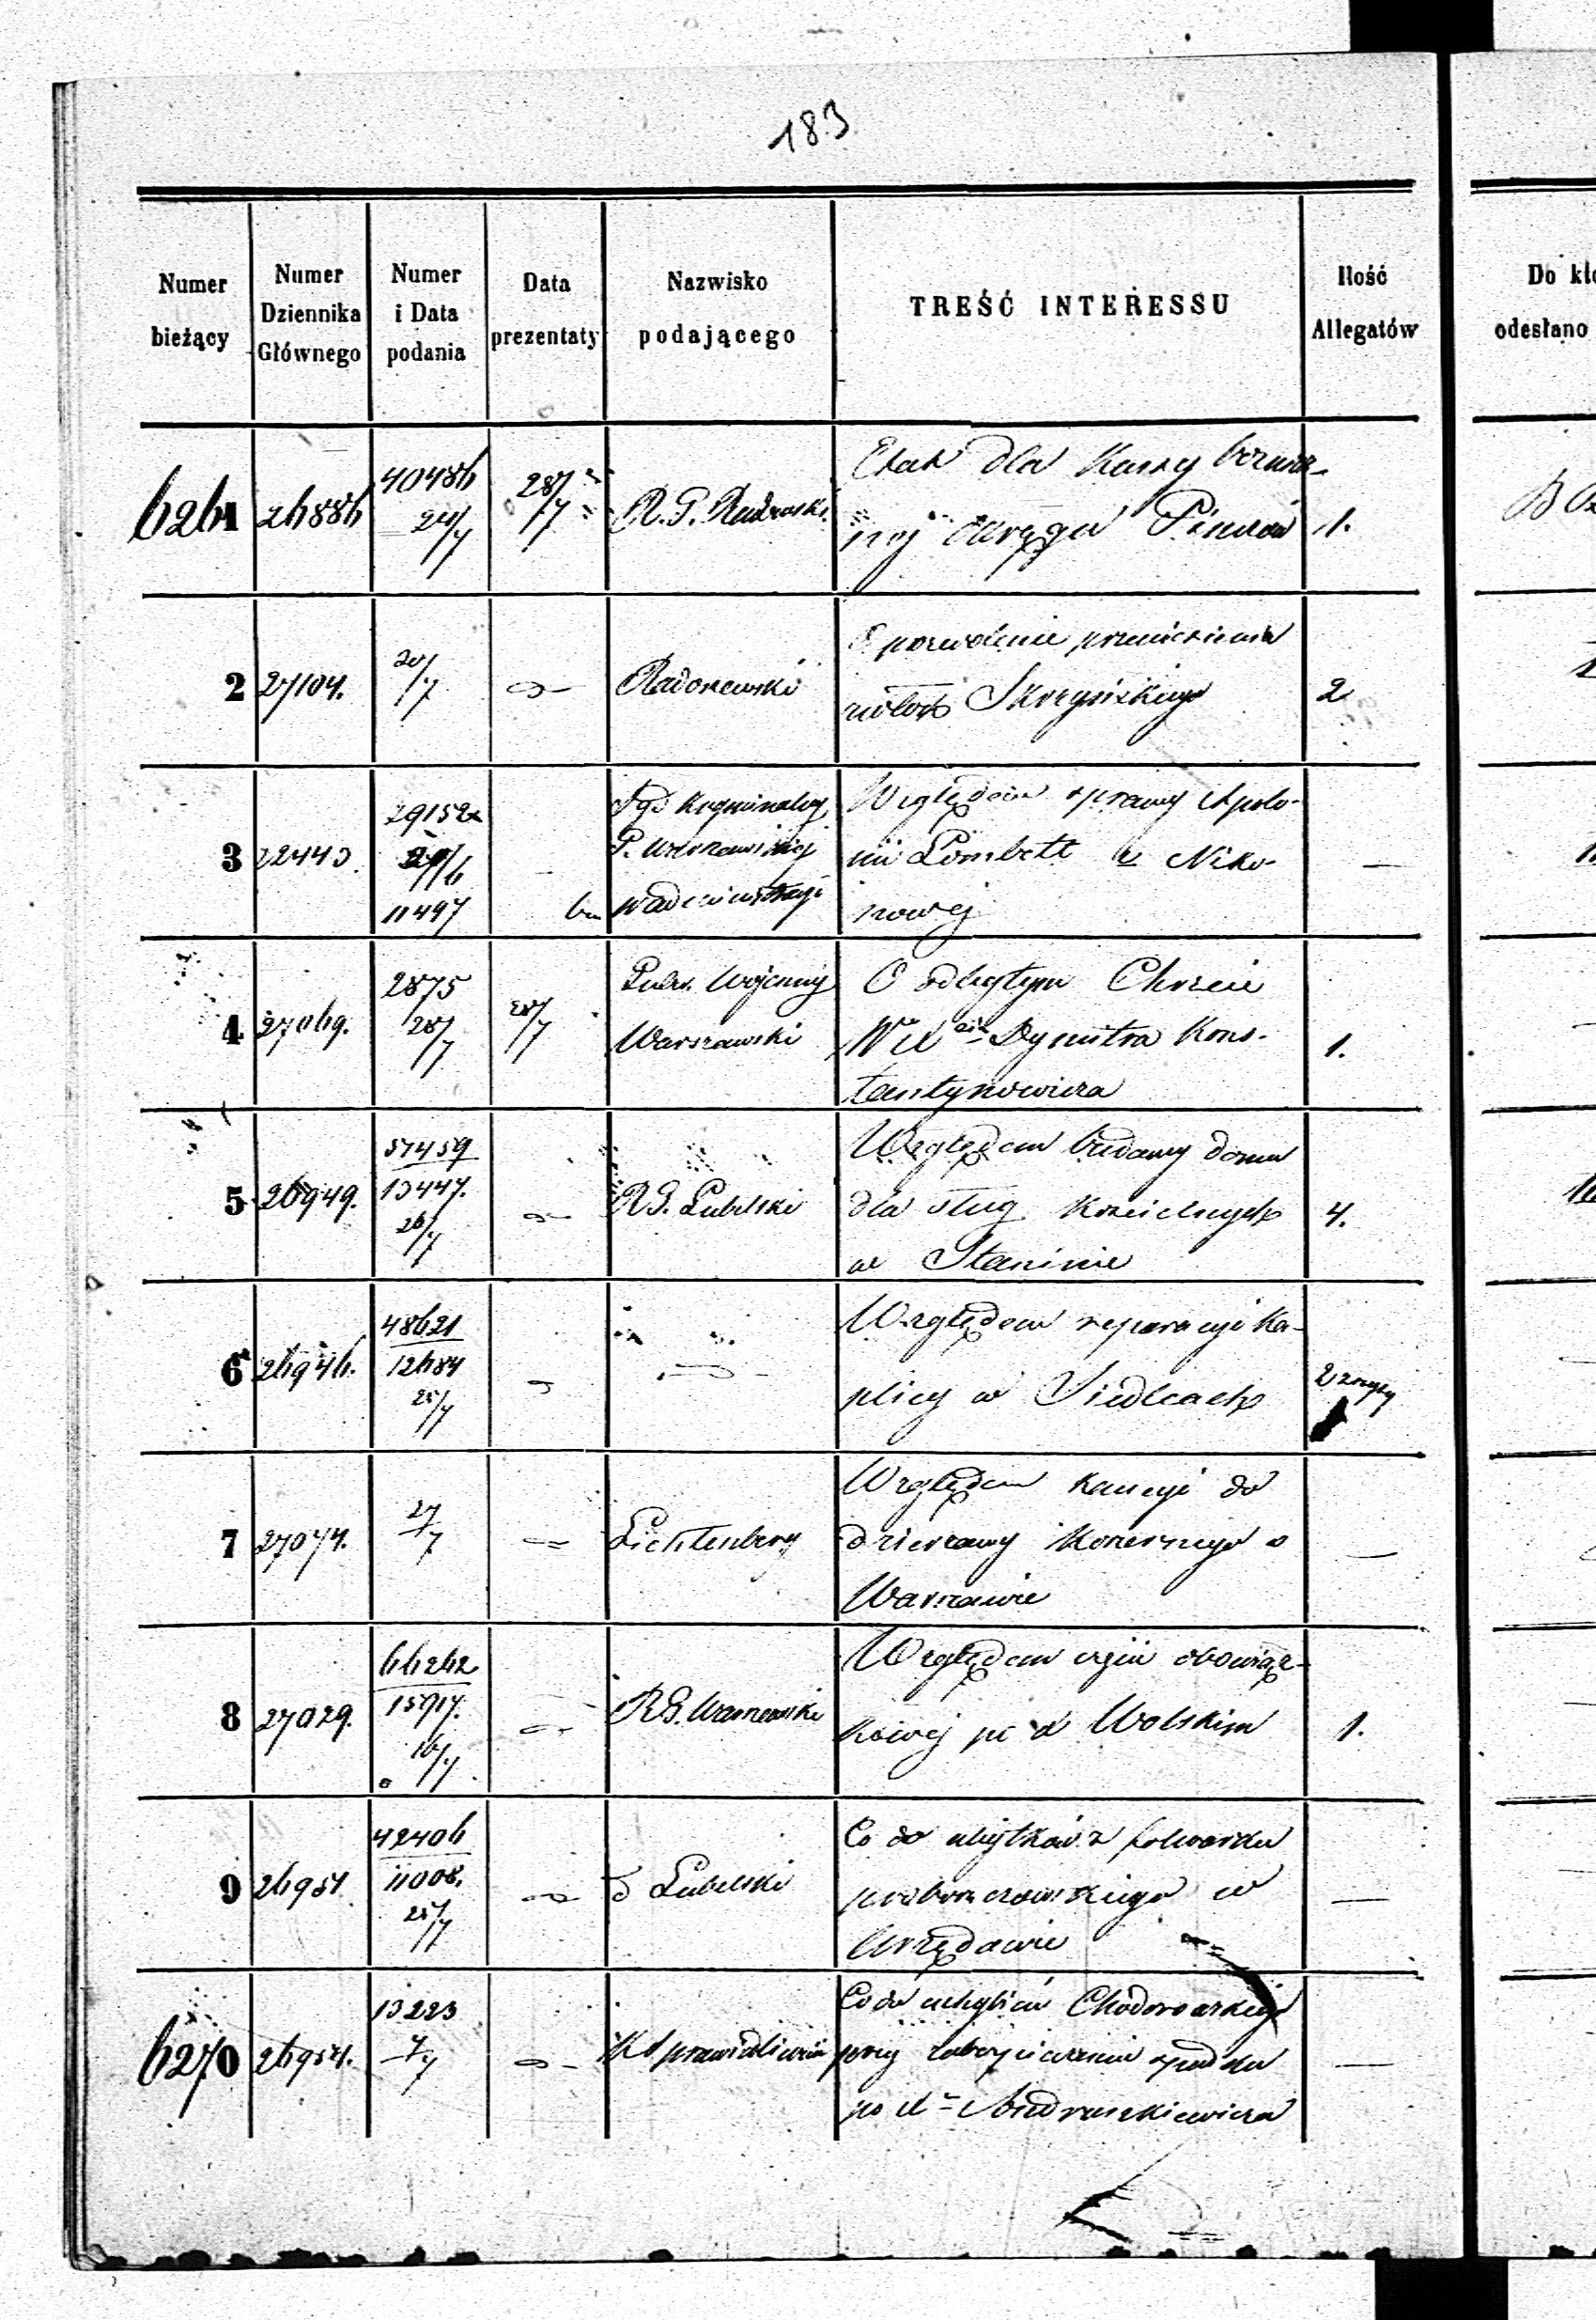 183
Numer bieżący
Numer Dziennika Głównego
Numer i Data podania
Data prezentaty
Nazwisko podającego
TREŚĆ INTERESSU
Ilość Allegatów
Do kł
odesłano
6261 26886 40486 24/7 28/7 R. G. Radomski
Etat dla Kassy
nej Okręgu 1.
2 27104. 20/7 Radoszewski
O pozwolenie przeniesienia
zwłok Skrzyńskiego 2
3 22443 29152 6 11497
Sąd Kryminalny
G. Warszawskiej
Względem sprawy Apolo-
nii Lombett v Niko-
nowej —
4 27069. 2875 28/7 28/7
Wojenny
Warszawski
O odbytym Chrzcie
Dymitra Kons-
tantynowicza 1.
5 26949. 57459 13447. 26/7 R.G. Lubelski
Względem budowy domu
dla sług kościelnych
w Staninie 4.
6 26946. 48621 12684 25/7
Względem reparacyi Ka-
plicy w Siedlcach
7 27074. 27/7 Lichtenberg
Względem kaucyi do
dzierżawy
Warszawie —
8 27029. 66262 15917. 16/7 R.G. Warszawski
Względem obowiąz-
kowej Wolskim 1.
9 26951 42406 11008. 25/7 d Lubelski
Co do użytków z folwarku
proboszczowskiego w
Urzędowie —
6270 26954. 13223 7/7 K Sprawiedliwości
Co do uchybień Chodorowskiego
przy spadku
po Andruszkiewicza —